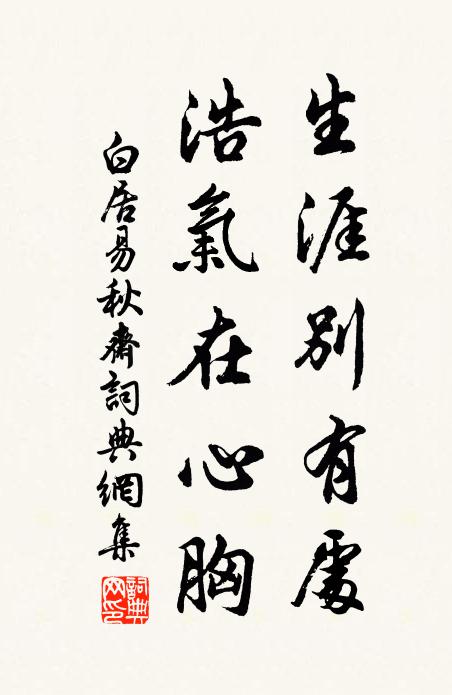 生涯別有處
浩氣在心胸
白居易秋齋詞典網集
詞典網印